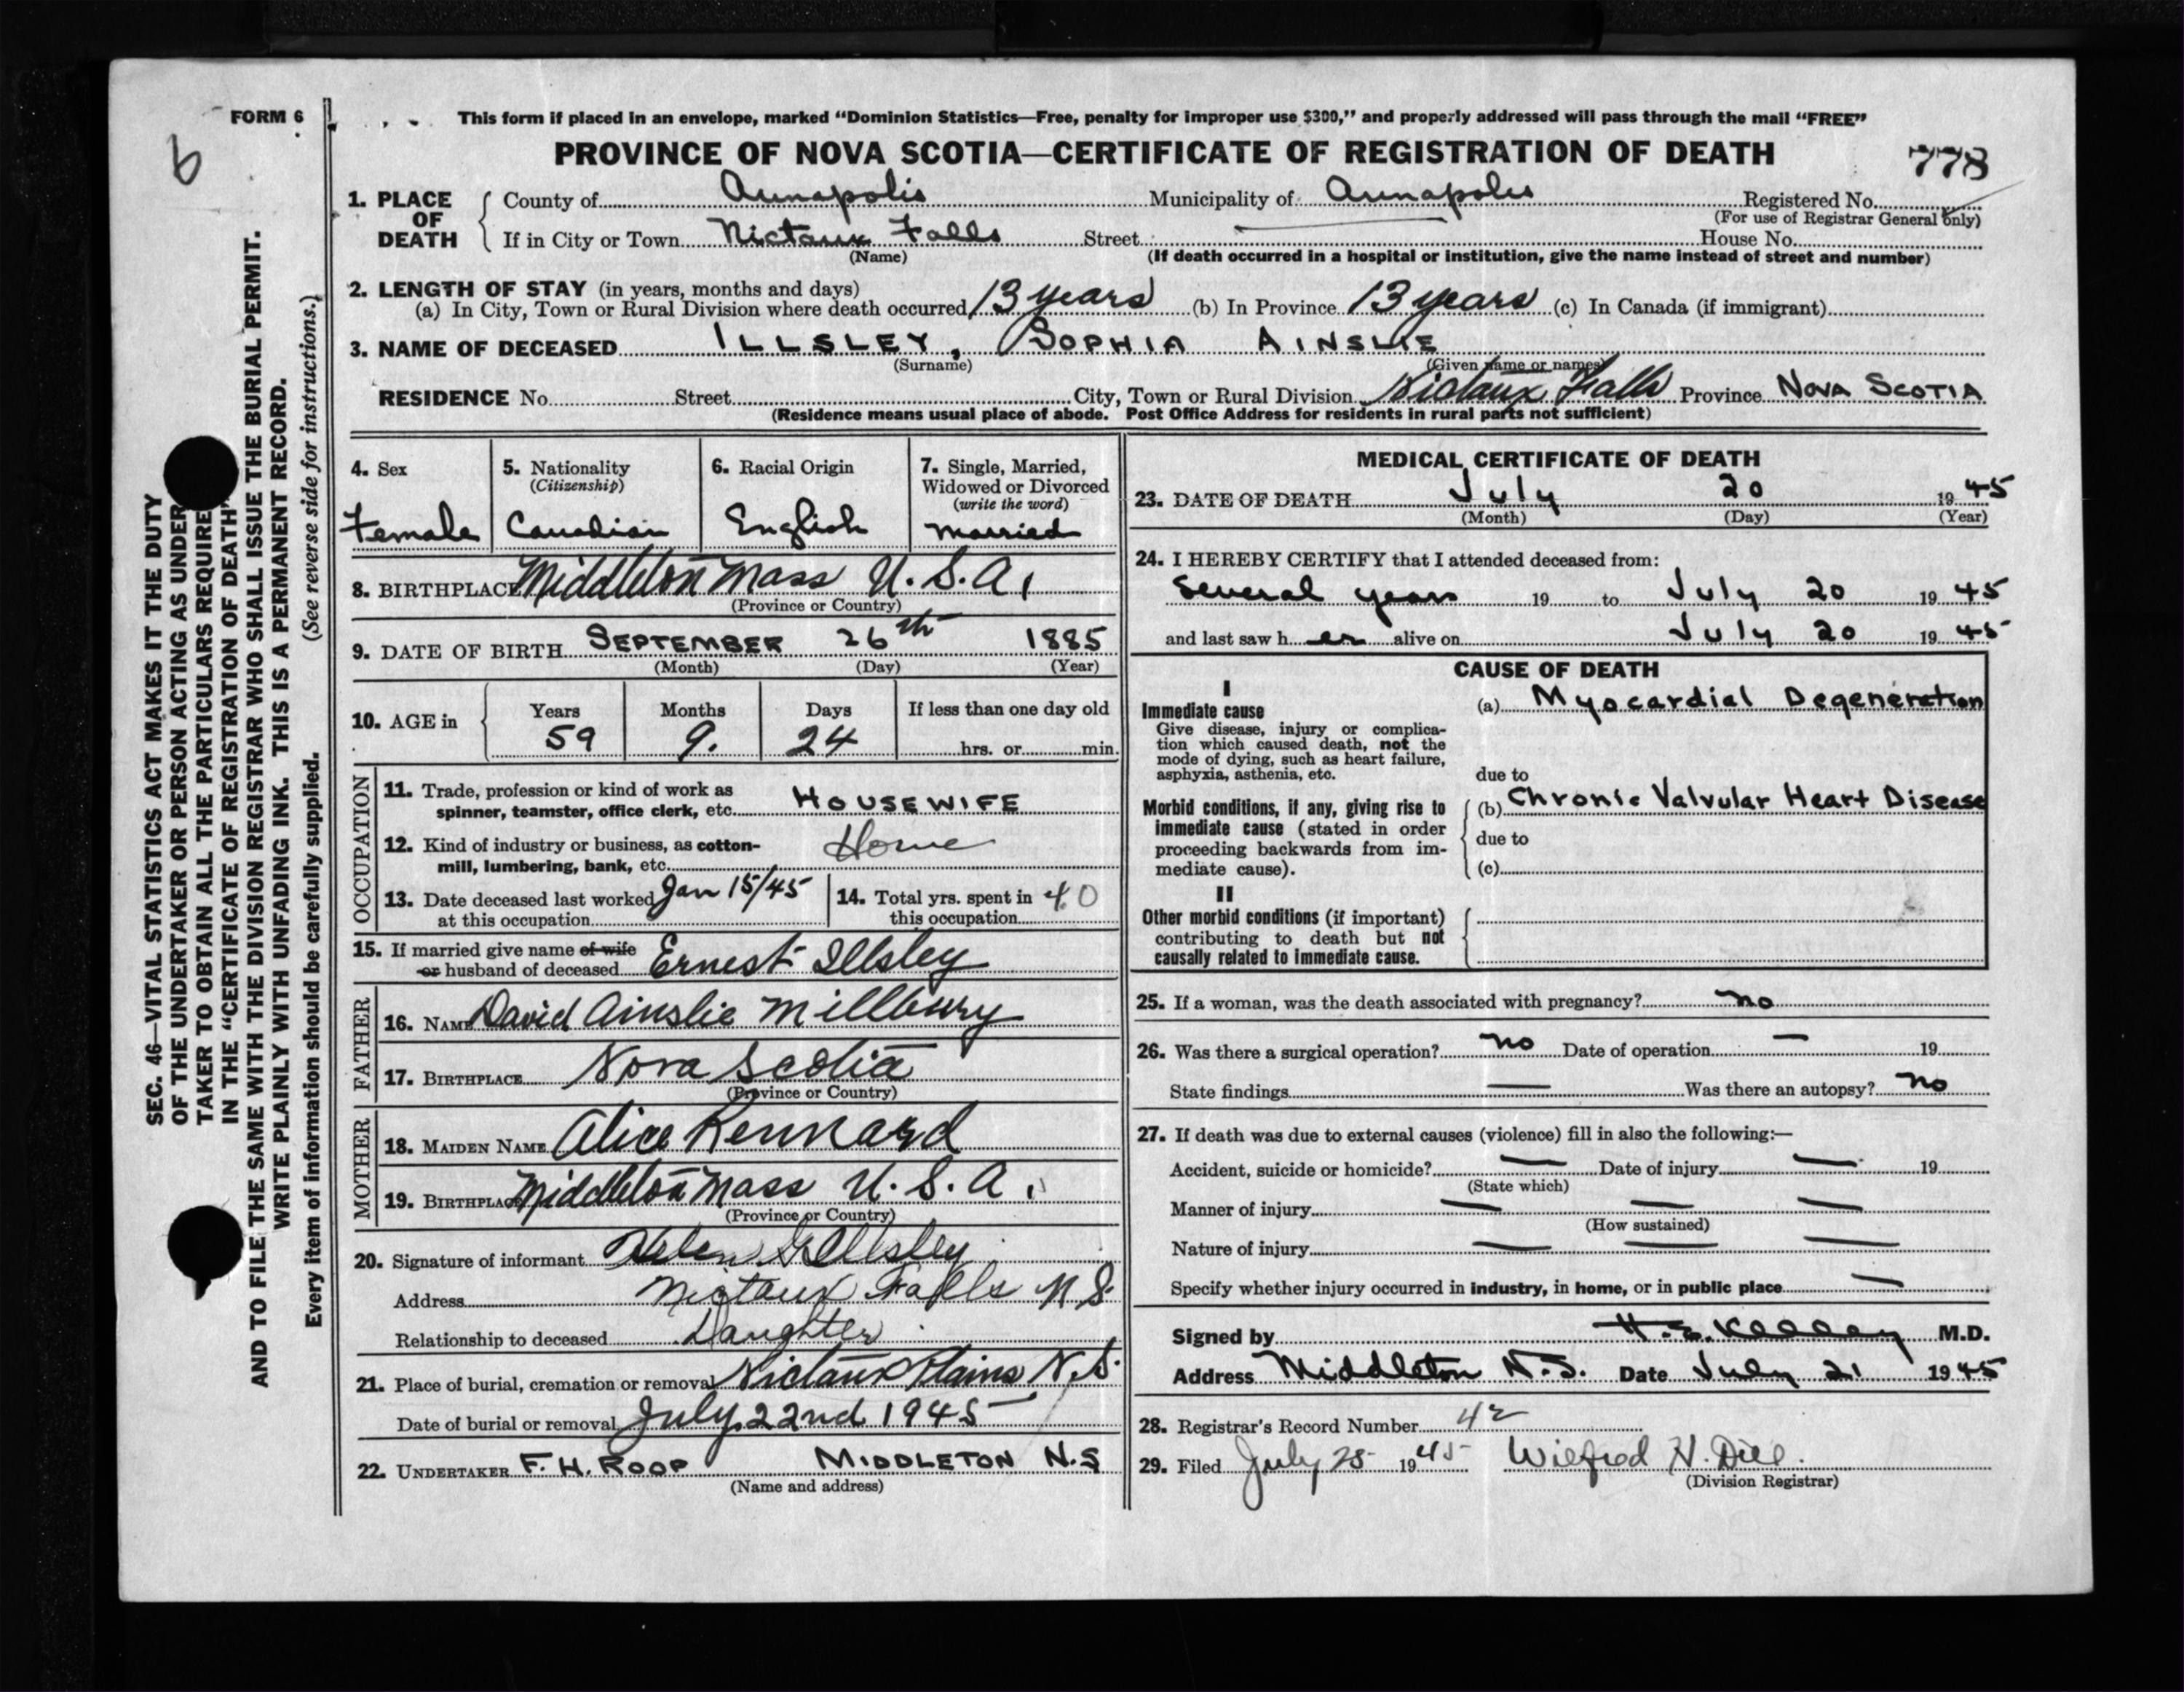 FORM 6
6
This form if placed in an envelope, marked "Dominion Statistics—Free, penalty for improper use $300," and properly addressed will pass through the mail "FREE"
PROVINCE OF NOVA SCOTIA—CERTIFICATE OF REGISTRATION OF DEATH
778
1. PLACE OF DEATH { County of Annapolis Municipality of Annapolis Registered No.
(For use of Registrar General only)
If in City or Town Nictaux Falls Street House No.
(Name) (If death occurred in a hospital or institution, give the name instead of street and number)
2. LENGTH OF STAY (in years, months and days)
(a) In City, Town or Rural Division where death occurred 13 years (b) In Province 13 years (c) In Canada (if immigrant)
3. NAME OF DECEASED ILLSLEY, SOPHIA AINSLIE
(Surname) (Given name or names)
RESIDENCE No. Street City, Town or Rural Division Nictaux Falls Province NOVA SCOTIA
(Residence means usual place of abode. Post Office Address for residents in rural parts not sufficient)
4. Sex
Female
5. Nationality
(Citizenship)
Canadian
6. Racial Origin
English
7. Single, Married,
Widowed or Divorced
(write the word)
Married
8. BIRTHPLACE Middleton Mass U.S.A.
(Province or Country)
9. DATE OF BIRTH SEPTEMBER 26th 1885
(Month) (Day) (Year)
10. AGE in { Years Months Days If less than one day old
59 9. 24 hrs. or min.
OCCUPATION
11. Trade, profession or kind of work as
spinner, teamster, office clerk, etc. HOUSEWIFE
12. Kind of industry or business, as cotton-
mill, lumbering, bank, etc. Home
13. Date deceased last worked Jan 15/45
at this occupation
14. Total yrs. spent in 40
this occupation
15. If married give name of wife
or husband of deceased Ernest Illsley
FATHER
16. NAME David Ainslie Millbury
17. BIRTHPLACE Nova Scotia
(Province or Country)
MOTHER
18. MAIDEN NAME Alice Kennard
19. BIRTHPLACE Middleton Mass U.S.A.
(Province or Country)
20. Signature of informant Helen G Illsley
Address Nictaux Falls N S
Relationship to deceased Daughter
21. Place of burial, cremation or removal Nictaux Plains N.S.
Date of burial or removal July 22nd 1945
22. UNDERTAKER F. H. ROOP MIDDLETON N.S
(Name and address)
MEDICAL CERTIFICATE OF DEATH
23. DATE OF DEATH July 20 1945
(Month) (Day) (Year)
24. I HEREBY CERTIFY that I attended deceased from:
Several years 19 to July 20 1945
and last saw her alive on July 20 1945
CAUSE OF DEATH
I
Immediate cause
Give disease, injury or complica-
tion which caused death, not the
mode of dying, such as heart failure,
asphyxia, asthenia, etc.
(a) Myocardial Degeneration
due to
Morbid conditions, if any, giving rise to
immediate cause (stated in order
proceeding backwards from im-
mediate cause).
(b) Chronic Valvular Heart Disease
due to
(c)
II
Other morbid conditions (if important)
contributing to death but not
causally related to immediate cause.
25. If a woman, was the death associated with pregnancy? no
26. Was there a surgical operation? no Date of operation — 19
State findings — Was there an autopsy? no
27. If death was due to external causes (violence) fill in also the following:—
Accident, suicide or homicide? — Date of injury — 19
(State which)
Manner of injury — — —
(How sustained)
Nature of injury — — —
Specify whether injury occurred in industry, in home, or in public place —
Signed by H. E. Kelley M.D.
Address Middleton N.S. Date July 21 1945
28. Registrar's Record Number 42
29. Filed July 25 1945 Wilfred H. Dill.
(Division Registrar)
SEC. 46—VITAL STATISTICS ACT MAKES IT THE DUTY
OF THE UNDERTAKER OR PERSON ACTING AS UNDER
TAKER TO OBTAIN ALL THE PARTICULARS REQUIRE
IN THE "CERTIFICATE OF REGISTRATION OF DEATH"
AND TO FILE THE SAME WITH THE DIVISION REGISTRAR WHO SHALL ISSUE THE BURIAL PERMIT.
WRITE PLAINLY WITH UNFADING INK. THIS IS A PERMANENT RECORD.
Every item of information should be carefully supplied. (See reverse side for instructions.)